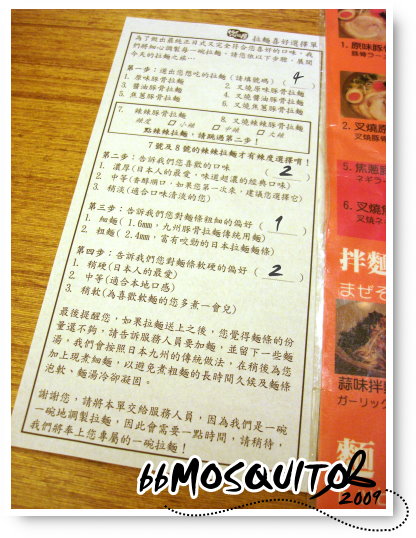 拉麵喜好選擇單
為了做出最純正日式又完全符合您喜好的口味，我
們將細心調製每一碗拉麵，請您依以下步驟，展開
今天的拉麵之旅…
第一步：選出您想吃的拉麵（請填號碼）（ 4 ）
1. 原味豚骨拉麵　2. 叉燒原味豚骨拉麵
3. 醬油豚骨拉麵　4. 叉燒醬油豚骨拉麵
5. 焦蔥豚骨拉麵　6. 叉燒焦蔥豚骨拉麵
7. 辣辣豚骨拉麵　8. 叉燒辣辣豚骨拉麵
辣度　□小辣　□中辣　□大辣
點辣辣拉麵，請跳過第二步！
7號及8號的辣辣拉麵才有辣度選擇唷！
第二步：告訴我們您喜歡的口味（ 2 ）
1. 濃厚(日本人的最愛，味道超濃的經典口味)
2. 中等(香醇順口，如果您第一次來，建議您選擇它)
3. 稍淡(適合口味清淡的您)
第三步：告訴我們對麵條粗細的偏好（ 1 ）
1. 細麵（1.6mm，九州豚骨拉麵傳統用麵）
2. 粗麵（2.4mm，富有咬勁的日本拉麵麵條）
第四步：告訴我們您對麵條軟硬的偏好（ 2 ）
1. 稍硬(日本人的最愛)
2. 中等(適合本地口感)
3. 稍軟(為喜歡軟麵的您多煮一會兒)
最後提醒您，如果拉麵送上之後，您覺得麵條的份
量還不夠，請告訴服務人員要加麵，並留下一些麵
湯，我們會按照日本九州的傳統做法，在稍後為您
加上現煮細麵，以避免煮粗麵的長時間久候及麵條
泡軟、麵湯冷卻凝固。
謝謝您，請將本單交給服務人員，因為我們是一碗
一碗地調製拉麵，因此會需要一點時間，請稍待，
我們將奉上您專屬的一碗拉麵！
1. 原味豚骨
豚骨ラー
2. 叉燒原
5. 焦蔥豚
ネギラー
6. 叉燒焦
叉燒ネギ
拌麵
まぜそ
蒜味拌
ガーリック
麵
bbMOSQUITO
2009